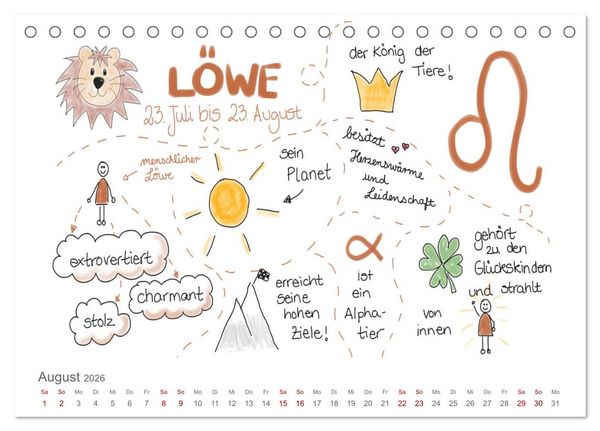 LÖWE
23. Juli bis 23. August
der König der
Tiere!
menschlicher
Löwe
sein
Planet
besitzt
Herzenswärme
und
Leidenschaft
extrovertiert
charmant
stolz
erreicht
seine
hohen
Ziele!
α
ist
ein
Alpha-
tier
gehört
zu den
Glückskindern
und strahlt
von
innen
August 2026
Sa So Mo Di Mi Do Fr Sa So Mo Di Mi Do Fr Sa So Mo Di Mi Do Fr Sa So Mo Di Mi Do Fr Sa So Mo
1 2 3 4 5 6 7 8 9 10 11 12 13 14 15 16 17 18 19 20 21 22 23 24 25 26 27 28 29 30 31